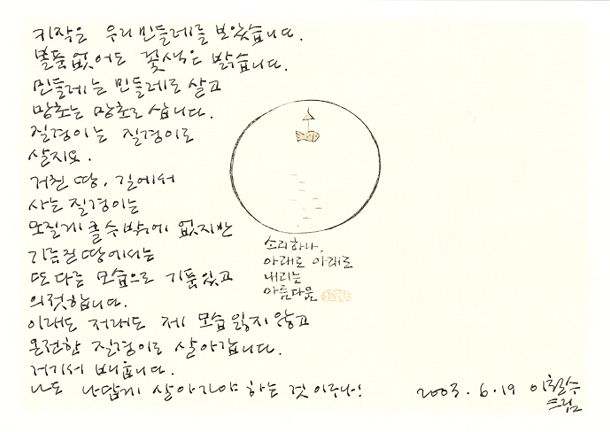 키작은 우리 민들레를 보았습니다.
볼품없어도 꽃색은 밝습니다.
민들레는 민들레로 살고
망초는 망초로 삽니다.
질경이는 질경이로
살지요.
거친 땅, 길에서
사는 질경이는
모질게 클 수밖에 없지만
기름진 땅에서는
또 다른 모습으로 기품있고
의젓합니다.
이래도 저래도 제 모습 잃지 않고
온전한 질경이로 살아갑니다.
거기서 배웁니다.
나도 나답게 살아가야 하는 것이구나!
소리하나,
아래로 아래로
내리는
아름다움
2003. 6. 19 이철수
드림